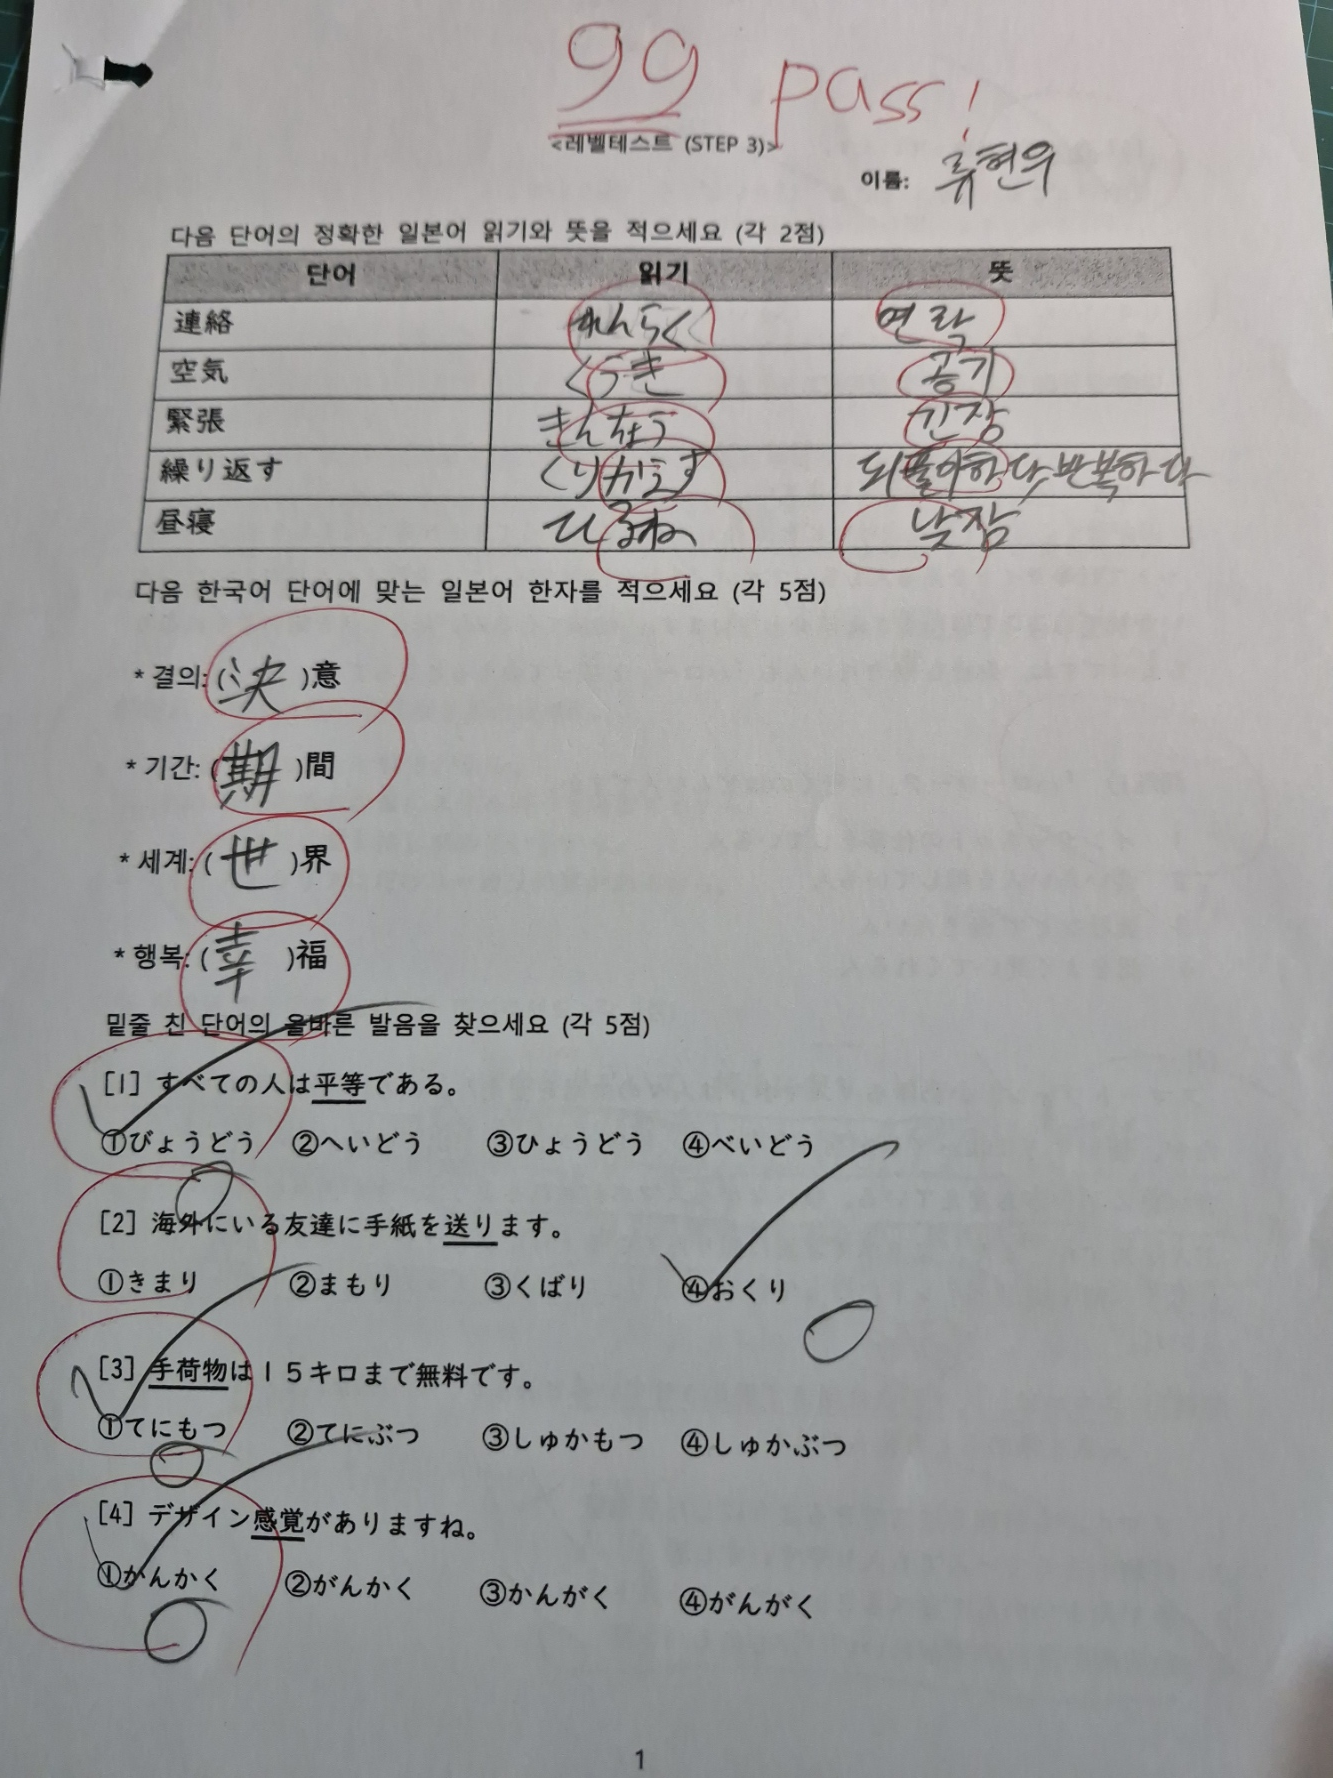 99 pass!
<레벨테스트 (STEP 3)>
이름: 류현우
다음 단어의 정확한 일본어 읽기와 뜻을 적으세요 (각 2점)
단어 읽기 뜻
連絡 れんらく 연락
空気 くうき 공기
緊張 きんちょう 긴장
繰り返す くりかえす 되풀이하다, 반복하다
昼寝 ひるね 낮잠
다음 한국어 단어에 맞는 일본어 한자를 적으세요 (각 5점)
* 결의: (決)意
* 기간: (期)間
* 세계: (世)界
* 행복: (幸)福
밑줄 친 단어의 올바른 발음을 찾으세요 (각 5점)
[1] すべての人は平等である。
①びょうどう ②へいどう ③ひょうどう ④べいどう
[2] 海外にいる友達に手紙を送ります。
①きまり ②まもり ③くばり ④おくり
[3] 手荷物は15キロまで無料です。
①てにもつ ②てにぶつ ③しゅかもつ ④しゅかぶつ
[4] デザイン感覚がありますね。
①かんかく ②がんかく ③かんがく ④がんがく
1